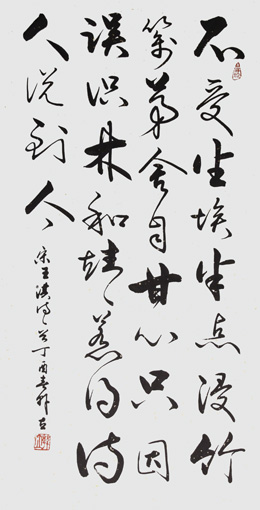 不受尘埃半点侵竹
篱茅舍自甘心只因
误识林和靖惹得诗
人说到今
宋王淇诗丁酉春